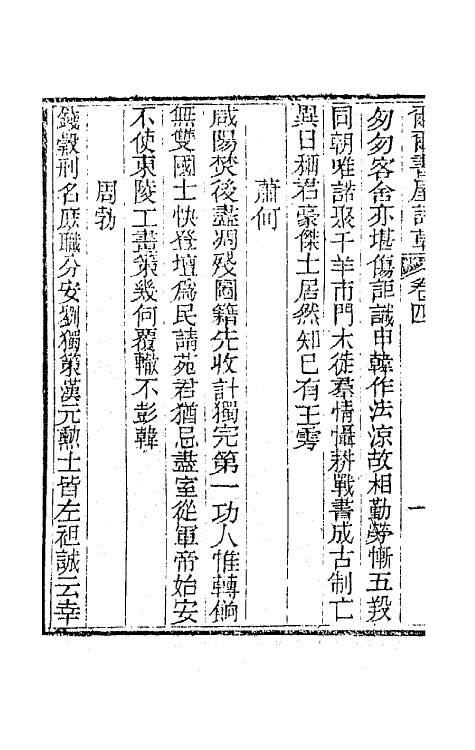 爾爾書屋詩草 卷四 一
匆匆客舍亦堪傷詎識申韓作法涼故相勤勞慚五羖
同朝唯諾聚千羊市門木徙羣情懾耕戰書成古制亡
異日稱君豪傑士居然知已有王雱
蕭何
咸陽焚後盡凋殘圖籍先收計獨完第一功人惟轉餉
無雙國士快登壇爲民請苑君猶忌盡室從軍帝始安
不使東陵工畫策幾何覆轍不彭韓
周勃
錢穀刑名庶職分安劉獨策漢元勲士皆左袒誠云幸